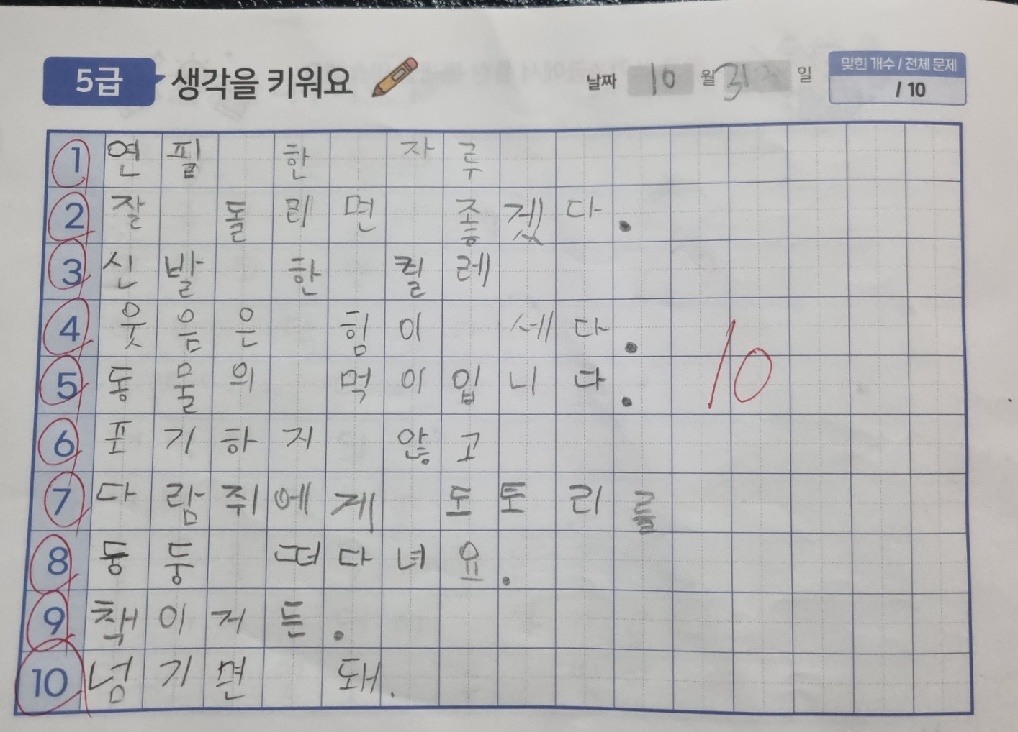 5급 생각을 키워요 날짜 10 월 31 일 맞힌 개수 / 전체 문제
/ 10
1 연필 한 자루
2 잘 돌리면 좋겠다.
3 신발 한 켤레
4 웃음은 힘이 세다.
5 동물의 먹이입니다.
10
6 포기하지 않고
7 다람쥐에게 도토리를
8 동둥 떠다녀요.
9 책이거든.
10 넘기면 돼.